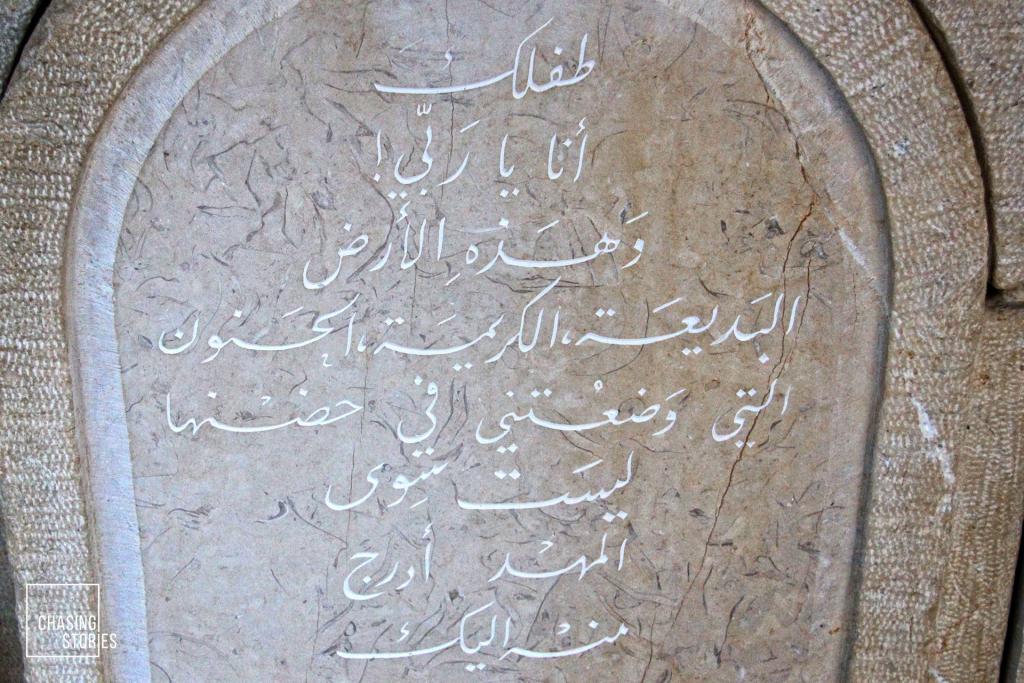 طفلك
أنا يا رَبّي!
وَهَذهِ الأرض
البَديعَة، الكريمَة، الحَنون
التي وَضعْتني في حضْنها
ليسَت سِوى
المهْد أدرج
منهْ اليك
CHASING
STORIES